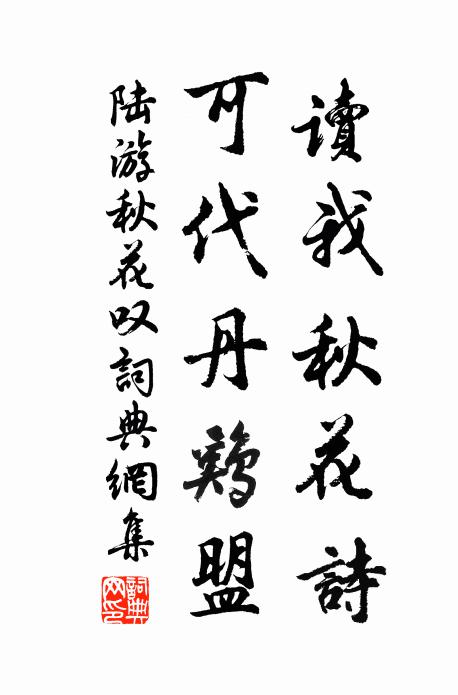 讀我秋花詩
可代丹鷄盟
陸游秋花叹詞典網集
詞典網印